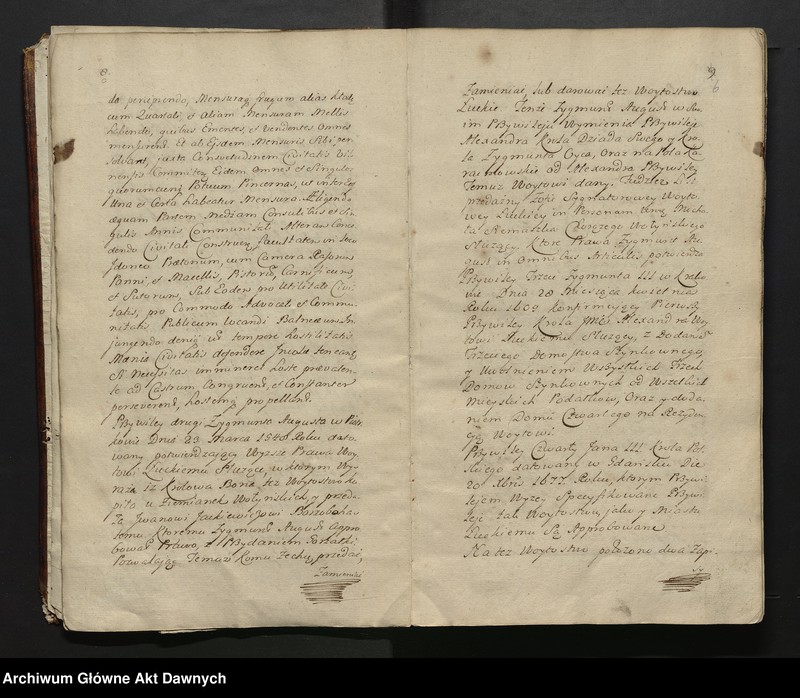 8.
do percipiendo, Mensuram frugum alias
cum Quartali, et Aliam Mensuram Mellis
habendo, quibus Ementes, et Vendentes Omnes
mensurent. Et ab Ejsdem Mensuris Sibi per
Solvant, juxta Consvetudinem Civitatis Vil
nensis Committtey Eidem Omnes et Singulos
quorumcunq Potuum Pincernas, ut inter Eos
Una et Certa habeatur Mensura. Eligendo
aequam Partem Mediam Consulibus et Sin
gulis Annis Communitati, Alteram Conce
dendo Civitati Construen facultatem in loco
Idoneo Praetorium, cum Camera Rasorum
Panni, et Macellis, Pistorum, Carnificum,
et Sutorum, Sub Eodem pro Utilitate Civi
tatis, pro Commodo Advocati et Commu
nitatis Publicum locandi Balneatum In
jungendo deniq us tempore hostilitatis
Maenia Civitatis defendere Incolae teneant,
Si Necessitas imminerit hoste praevalen
te ad Castrum Congruent, et Constanter
perseverent, hostemq propellent.
Przywiley drugi Zygmunta Augusta w Piotr
kowie Dnia 23 Marca 1548 Roku dato
wany potwierdzaiący Wyższe Prawa Woy
towi Łuckiemu Służące, w ktorym Wy
raża iż Krolowa Bona też Woytostwo ku
piła u Ziemianek Wołyńskich, y przeda
ła Iwanowi Jackiewiczowi Borzobaha
temu, Ktoremu Zygmunt August appro
bował Prawo, z Przydaniem Foralki
Pozwalaiąc Temuż Komu zechce, przedać,
Zamieniać
9
6
Zamieniać, lub darować też Woytostwo
Łuckie. Tenże Zygmunt August w Sw
im Przywileju Wymienia Przywileje
Alexandra Krola Dziada Swego y Kro
la Zygmunta Oyca, Oraz na Pola Ka
raimowskie od Alexandra Przywiley
Temuż Woytowi dany.
przedażny Zofii Sygnaturowey Woyto
wey Łuckiey in Personam Urodz.
Siemaszka Chorążego Wołyńskiego
Służący. Ktore Prawa Zygmunt Au
gust in Omnibus Articulis potwierdza
Przywiley Trzeci Zygmunta III w Krako
wie Dnia 28 Miesiąca kwietnia
Roku 1609 konfirmujący Pierwszy
Przywiley Krola Jmć Alexandra Woy
towi Łuckiemu Służący, z Dodaniem
Trzeciego Domostwa Szynkownego,
y Uwolnieniem Wszystkich Trzech
Domow Szynkownych od Wszelkich
Mieyskich Podatkow, Oraz y doda
niem Domu Czwartego na Rezyden
cyą Woytowi.
Przywiley Czwarty Jana III Krola Pol
skiego datowany w Gdańsku Die
20 Xbris 1677 Roku, ktorym Przywi
lejem Wyżey Specyfikowane Przywi
leje tak Woytostwu, jako y Miastu
Łuckiemu Są Approbowane
Na też Woytostwo położono dwa Zapi-
sy
Archiwum Główne Akt Dawnych